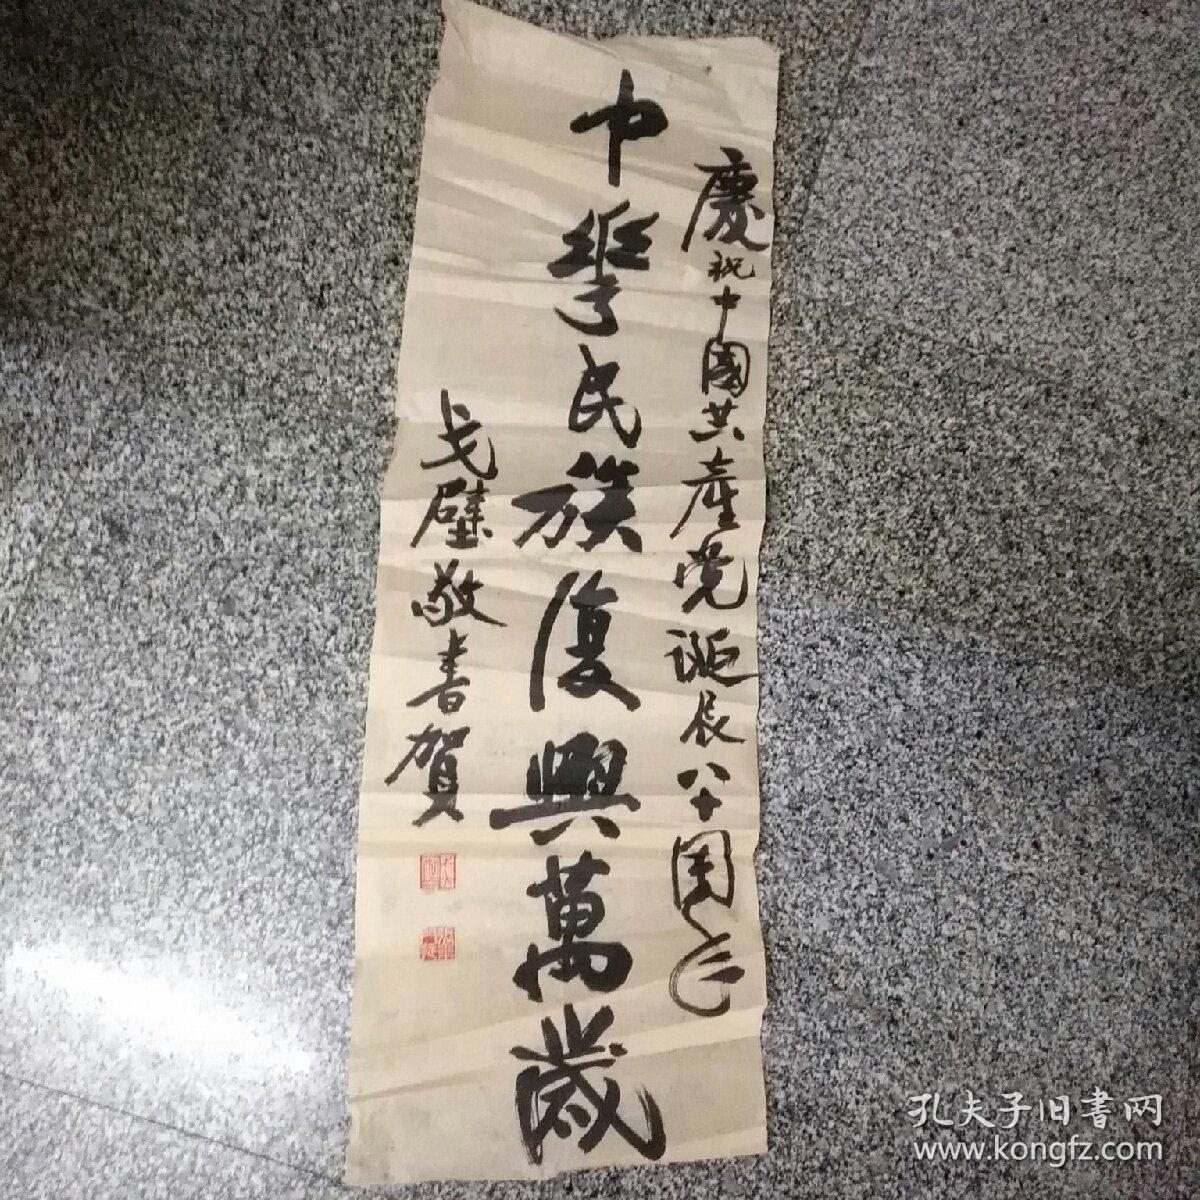 慶祝中國共產党誕辰八十周年
中華民族復興萬歲
戈壁敬書賀
孔夫子旧書网
www.kongfz.com